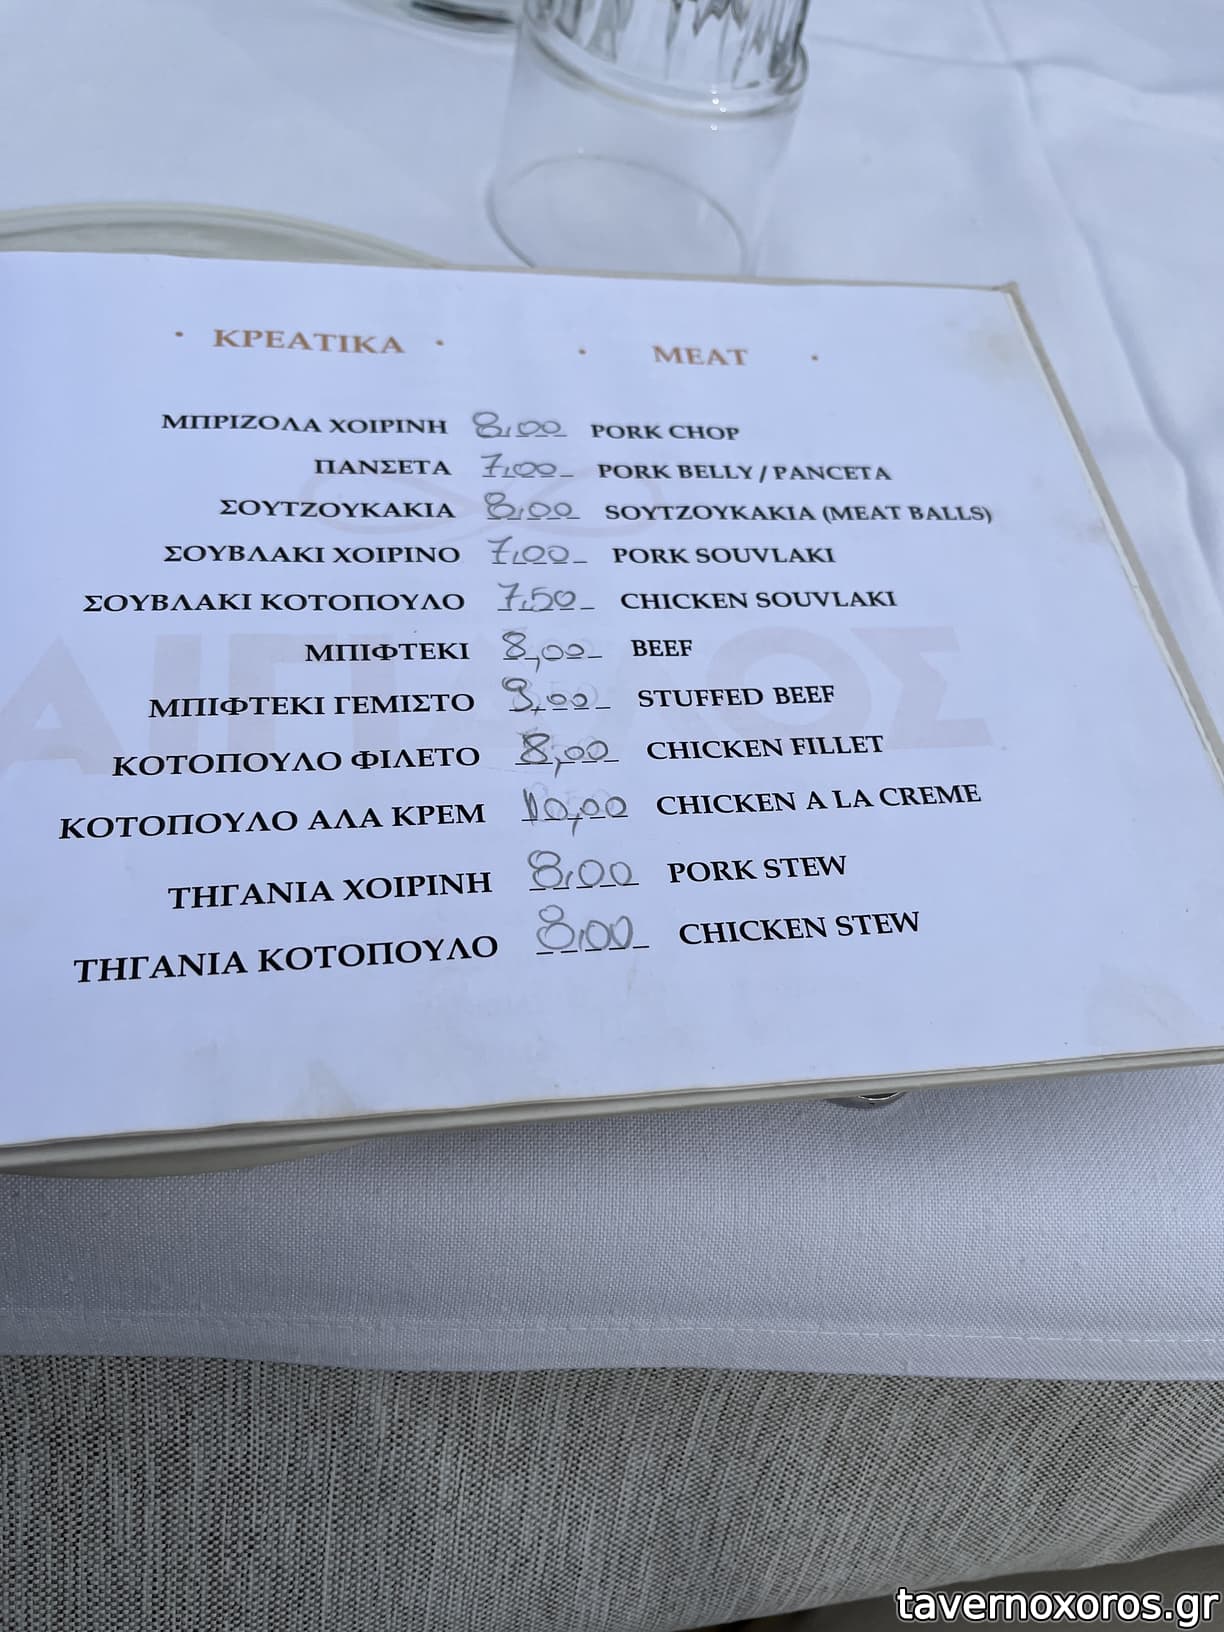 · ΚΡΕΑΤΙΚΑ · · MEAT ·
ΜΠΡΙΖΟΛΑ ΧΟΙΡΙΝΗ 8,00 PORK CHOP
ΠΑΝΣΕΤΑ 7,00 PORK BELLY / PANCETA
ΣΟΥΤΖΟΥΚΑΚΙΑ 8,00 SOYTZOYKAKIA (MEAT BALLS)
ΣΟΥΒΛΑΚΙ ΧΟΙΡΙΝΟ 7,00 PORK SOUVLAKI
ΣΟΥΒΛΑΚΙ ΚΟΤΟΠΟΥΛΟ 7,50 CHICKEN SOUVLAKI
ΜΠΙΦΤΕΚΙ 8,00 BEEF
ΜΠΙΦΤΕΚΙ ΓΕΜΙΣΤΟ 9,00 STUFFED BEEF
ΚΟΤΟΠΟΥΛΟ ΦΙΛΕΤΟ 8,00 CHICKEN FILLET
ΚΟΤΟΠΟΥΛΟ ΑΛΑ ΚΡΕΜ 10,00 CHICKEN A LA CREME
ΤΗΓΑΝΙΑ ΧΟΙΡΙΝΗ 8,00 PORK STEW
ΤΗΓΑΝΙΑ ΚΟΤΟΠΟΥΛΟ 8,00 CHICKEN STEW
tavernoxoros.gr